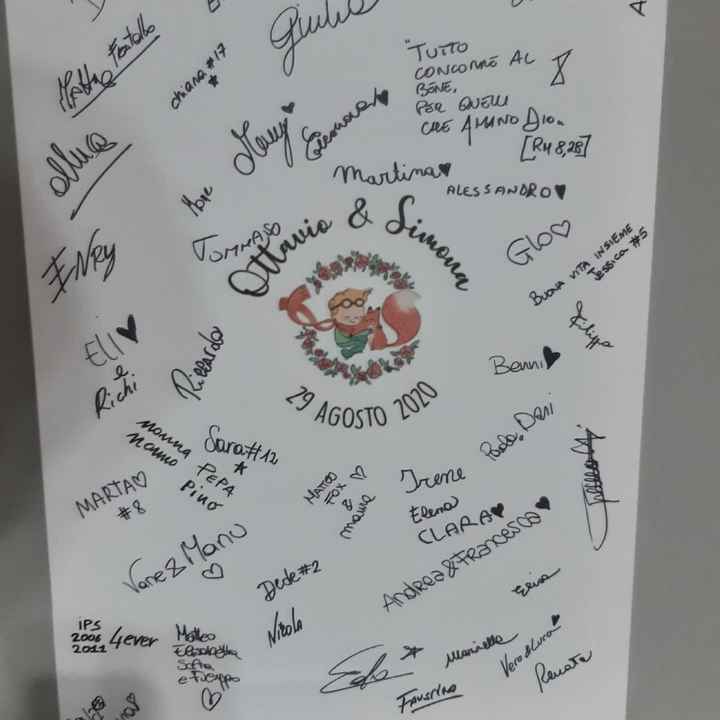 Giulia
Fentalbo
chiara #17
"TUTTO
CONCORRE AL
BENE,
PER QUELLI
CHE AMANO DIO."
[RM 8,28]
Eleonora
Martina
ALESSANDRO
TOMMASO
Ottavio & Simona
Glo
BUONA VITA INSIEME
JESSICA #5
ENRY
Filippo
ELI
e
Richi
Riccardo
Benni
29 AGOSTO 2020
NONNA
NONNO
PEPA
PINO
Sara #12
MARTA
#8
MATTEO
FOX
&
Irene
Paola, Dani
Elena
CLARA
Andrea & Francesca
Vane & Manu
Dede #2
Nicola
Elisa
iPS
2006
2011
4ever
Matteo
Elisabetta
Sofia
e Filippo
Marinella
Vero & Luca
Renata
FAUSTINO